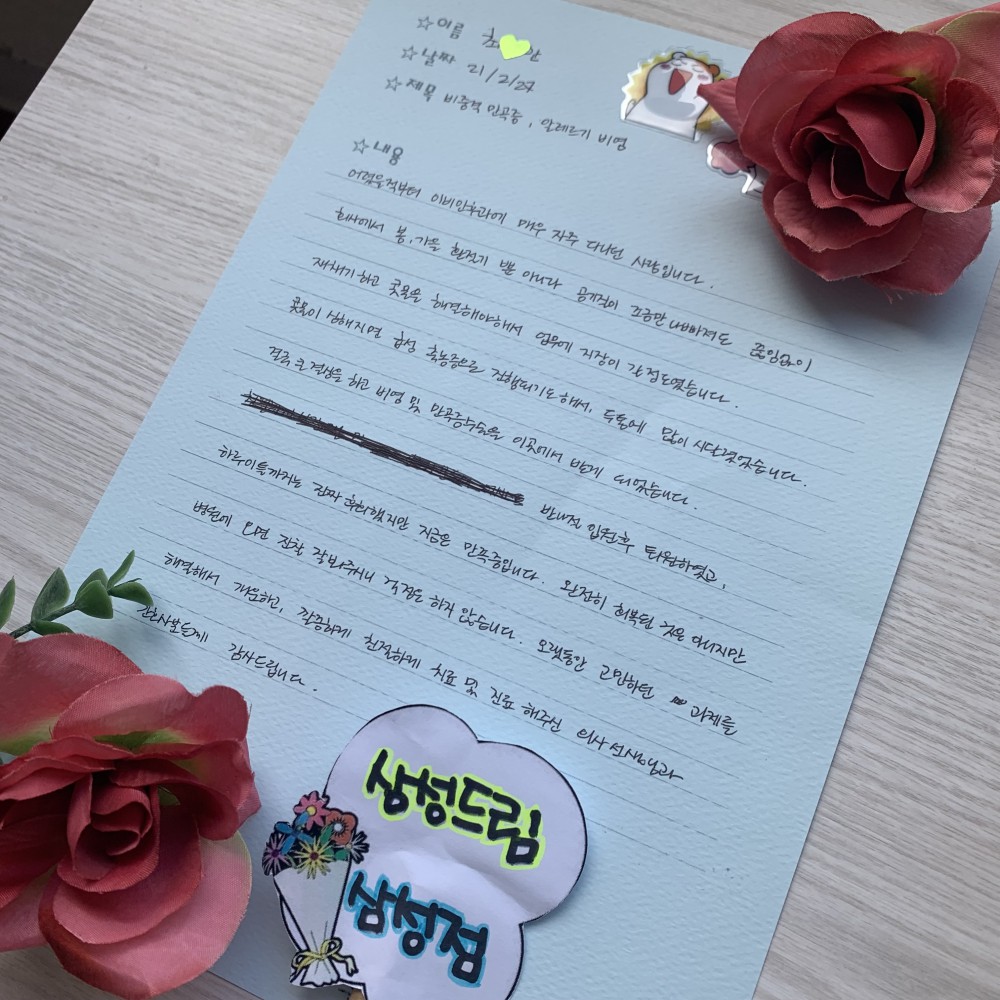 ☆이름 최💛안
☆날짜 21/2/27
☆제목 비중격 만곡증, 알레르기 비염
☆내용
어렸을적부터 이비인후과에 매우 자주 다니던 사람입니다.
회사에서 봄, 가을 환절기 뿐 아니라 공기질이 조금만 나빠져도 끊임없이
재채기 하고 콧물을 해결해야해서 업무에 지장이 갈 정도였습니다.
콧물이 심해지면 급성 축농증으로 진행되기도 해서, 두통에 많이 시달렸었습니다.
결국 큰 결심을 하고 비염 및 만곡증수술을 이곳에서 받게 되었습니다.
반나절 입원후 퇴원하였고,
하루이틀까지는 진짜 후회했지만 지금은 만족중입니다. 완전히 회복된 것은 아니지만
병원에 오면 진찰 잘봐주시니 걱정은 하지 않습니다. 오랫동안 고민하던 과제를
해결해서 개운하고, 꼼꼼하게 친절하게 치료 및 진료 해주신 의사선생님과
간호사분들께 감사드립니다.
삼성드림
삼청점